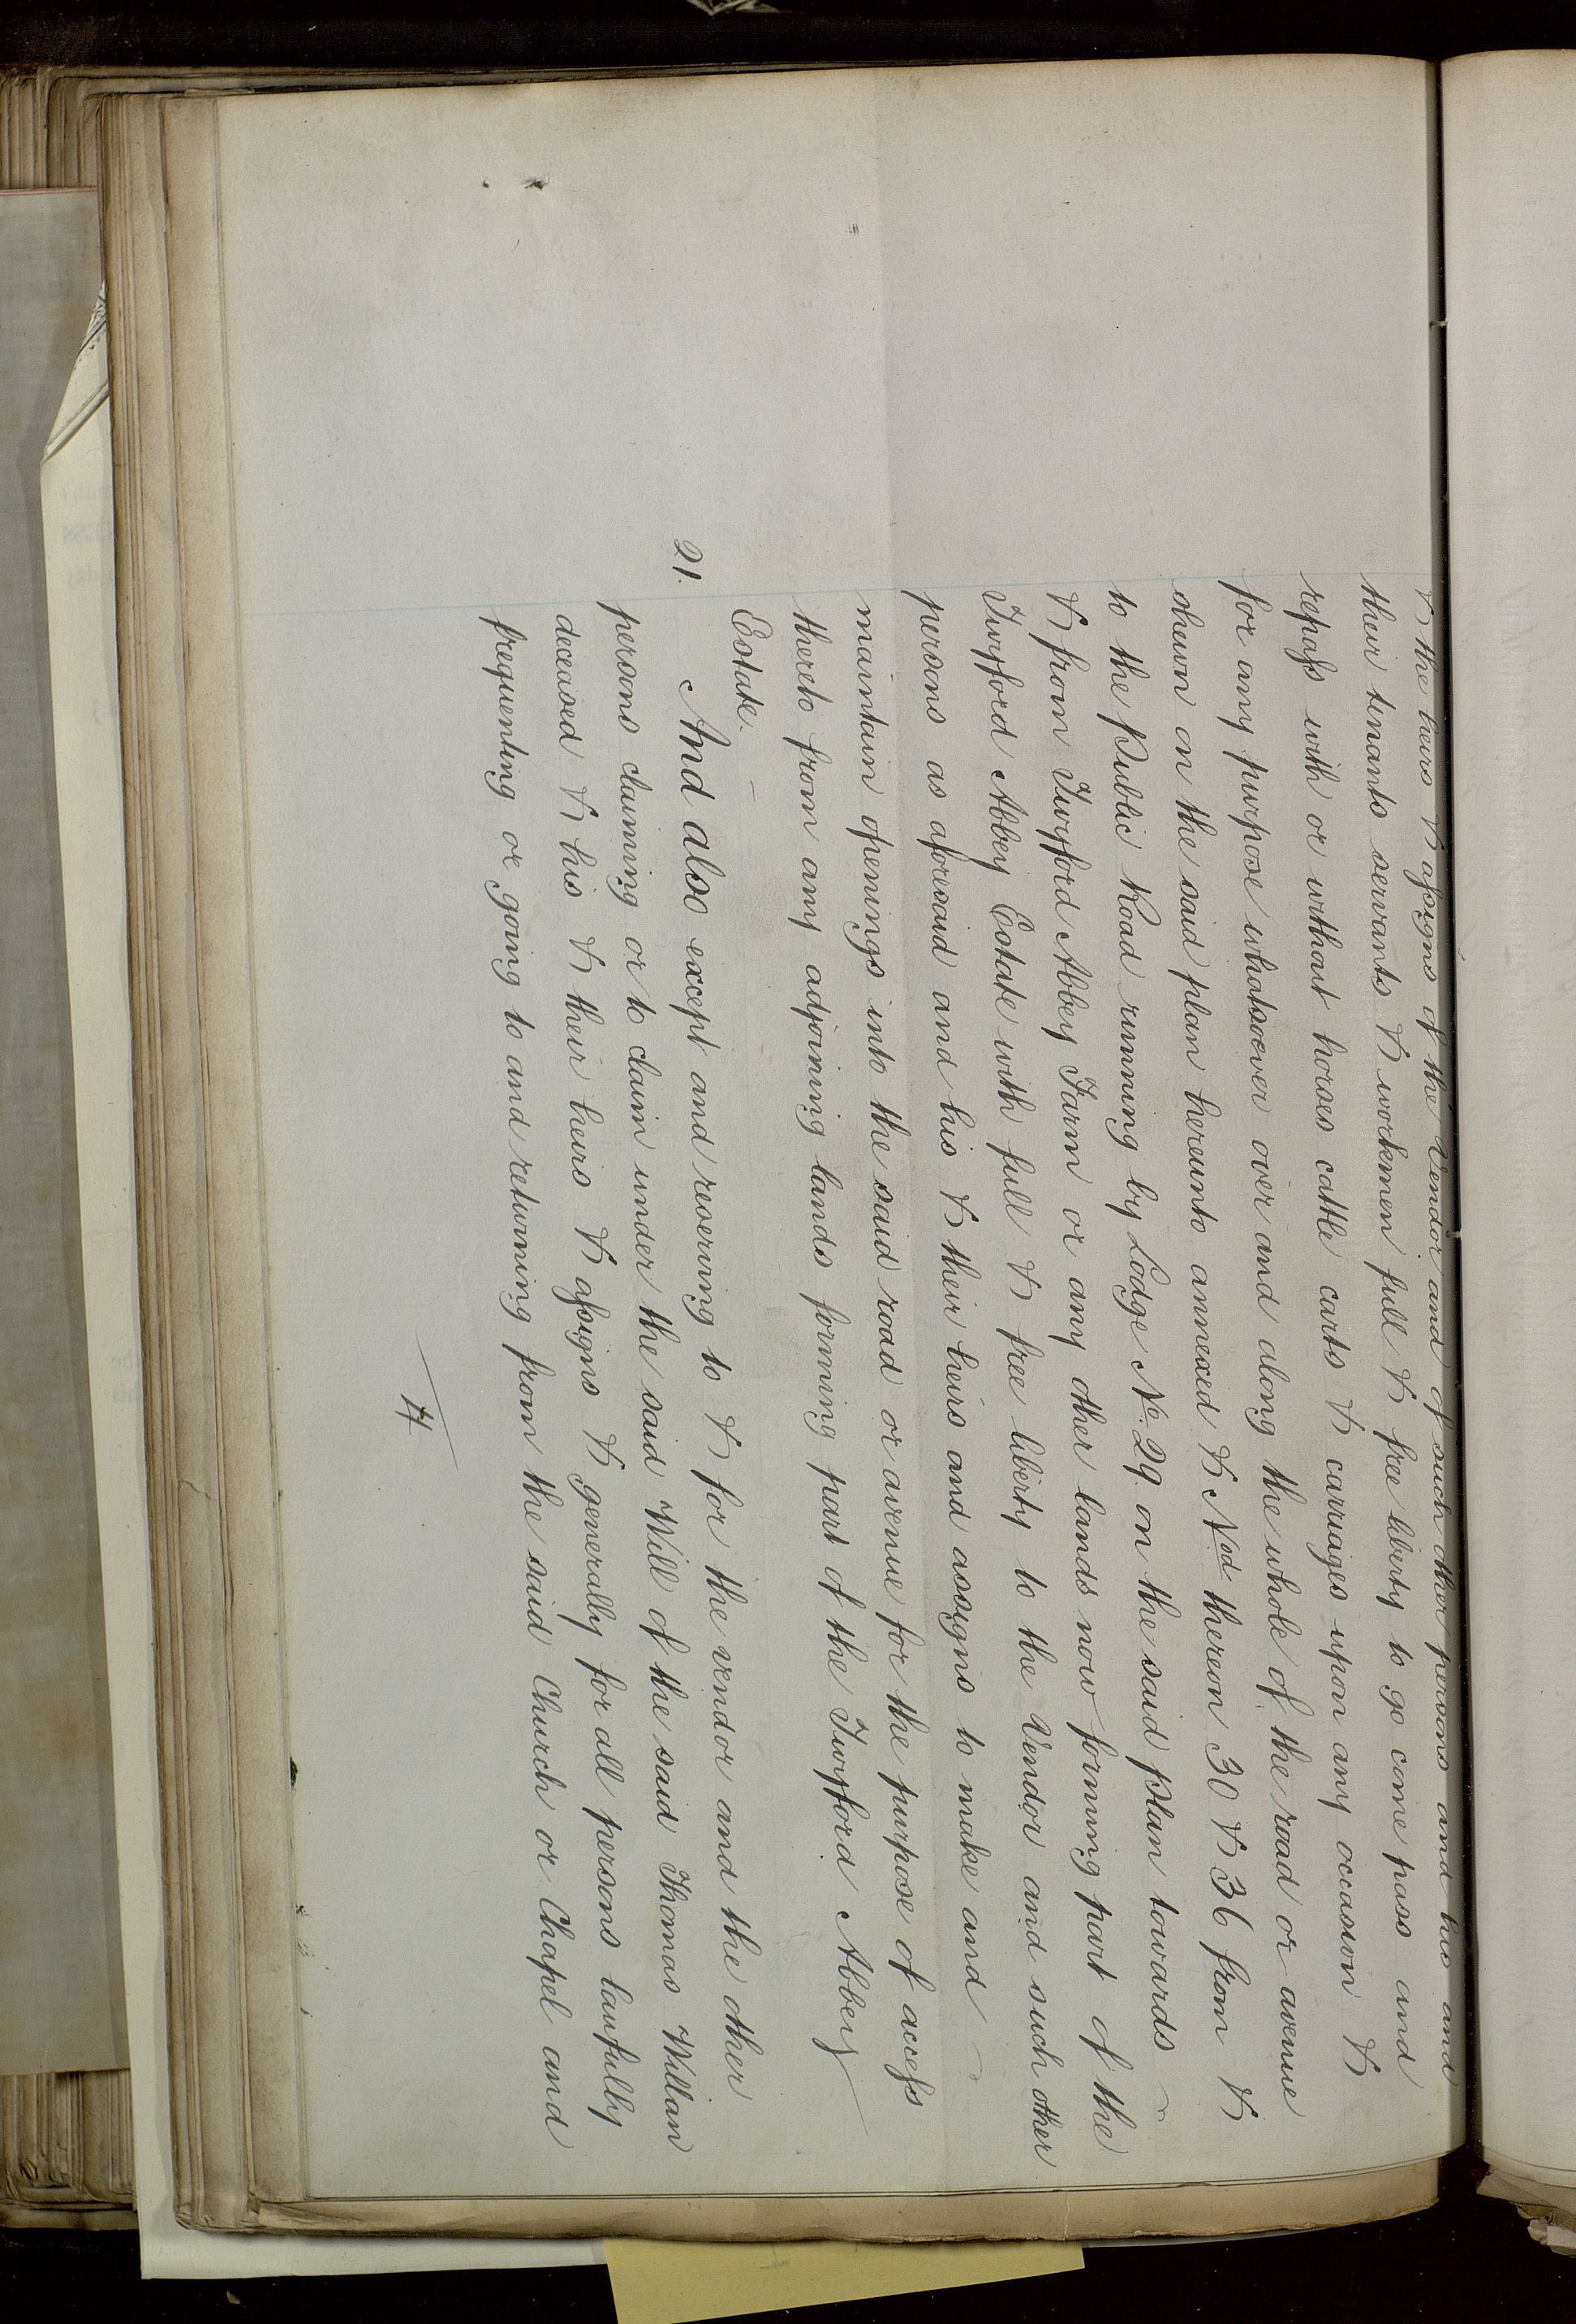 & the heirs & assigns of the Vendor and of such other persons and his and
their tenants servants & workmen full & free liberty to go come pass and
repass with or without horses cattle carts & carriages upon any occasion &
for any purpose whatsoever over and along the whole of the road or avenue
shewn on the said plan hereunto annexed & Nod thereon 30 & 36 from &
to the Public Road running by Lodge No. 29. on the said Plan towards
& from Twyford Abbey Farm or any other lands now forming part of the
Twyford Abbey Estate with full & free liberty to the Vendor and such other
persons as aforesaid and his & their heirs and assigns to make and
maintain openings into the said road or avenue for the purpose of access
thereto from any adjoining lands forming part of the Twyford Abbey
Estate.
21. And also except and reserving to & for the vendor and the other
persons claiming or to claim under the said Will of the said Thomas Willan
deceased & his & their heirs & assigns & generally for all persons lawfully
frequenting or going to and returning from the said Church or Chapel and
4